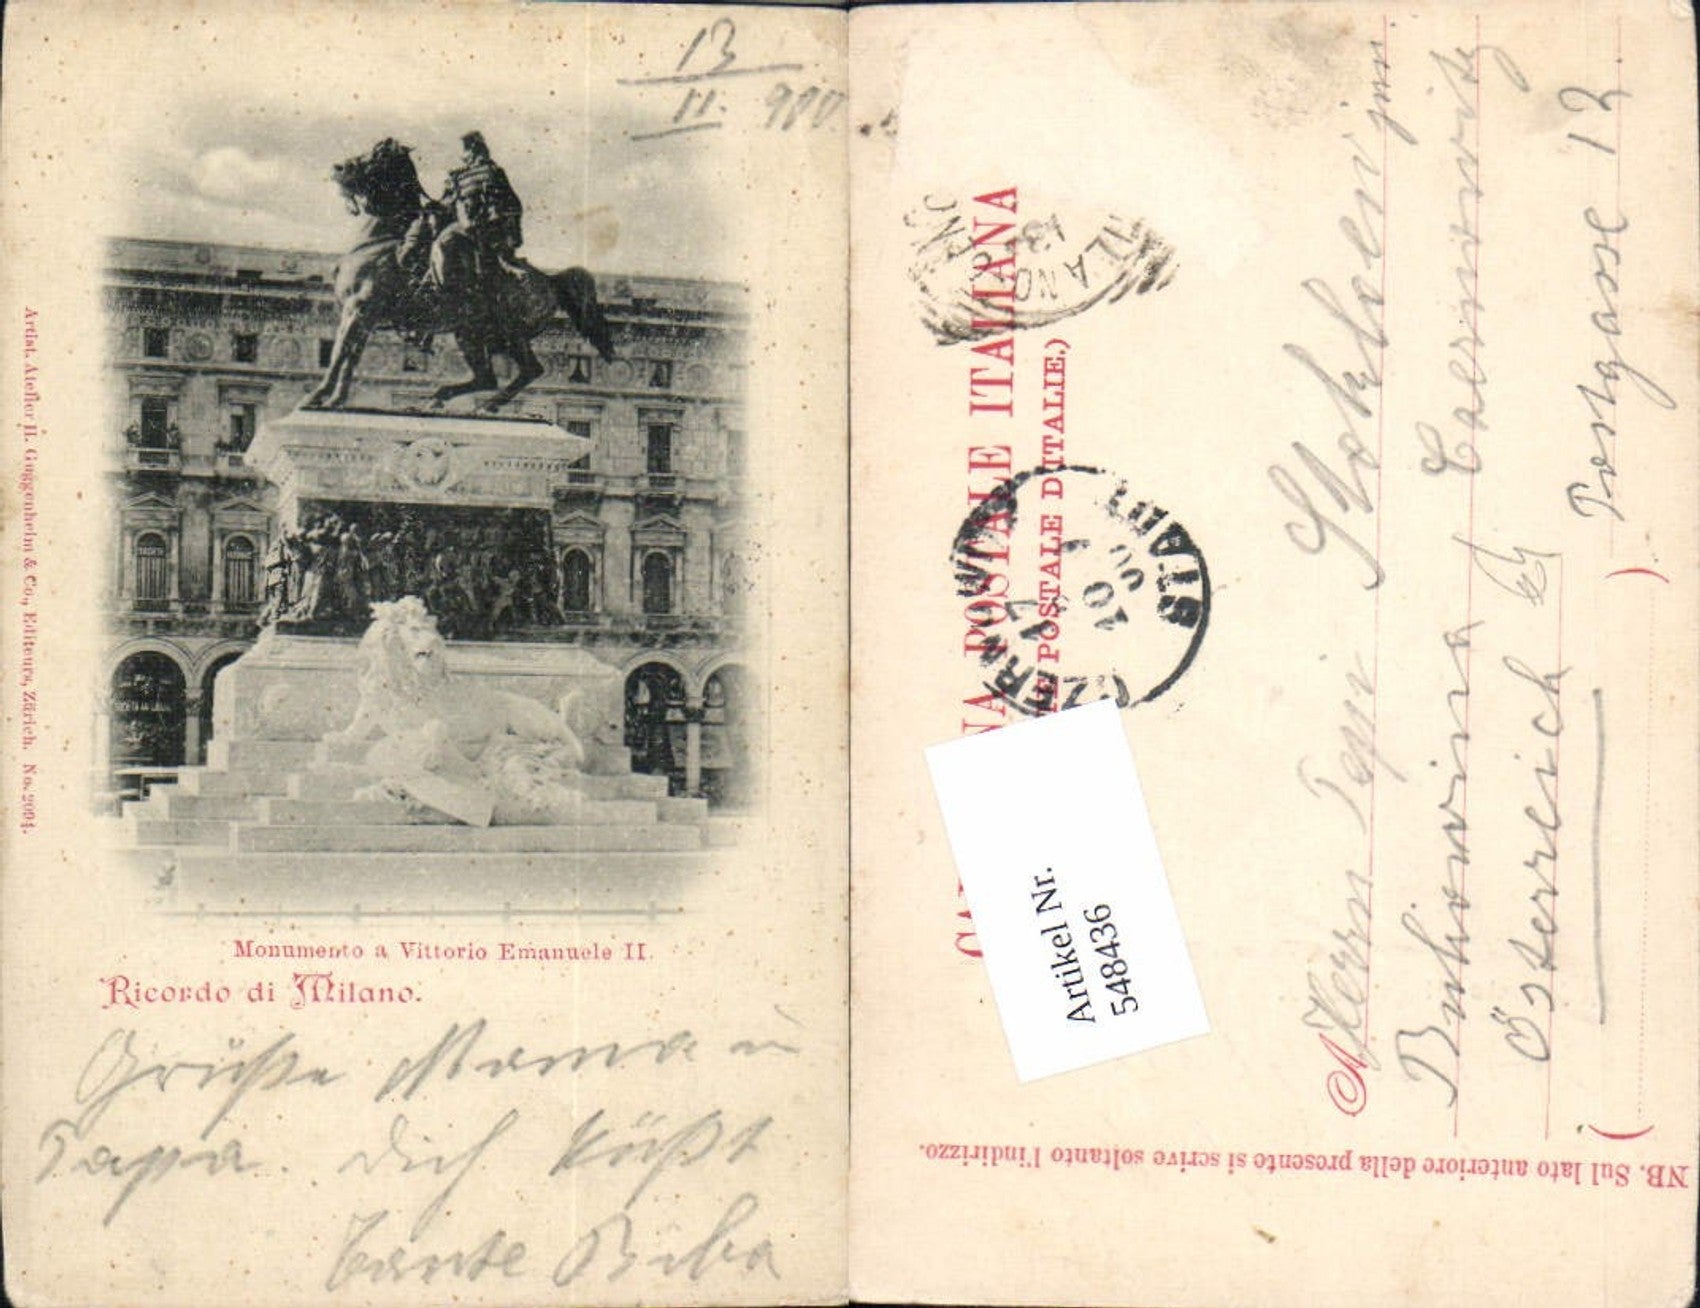 13
11. 900.
Artist. Atelier H. Guggenheim & Co., Editeurs, Zürich. No. 2094.
Monumento a Vittorio Emanuele II.
Ricordo di Milano.
Grüße Mama u
Papa. Dich küßt
Tante
CARTOLINA POSTALE ITALIANA
E POSTALE D'ITALIE.)
MILANO
13
CZERNOWITZ
STADT
Artikel Nr.
548436
A Herrn
jun.
Bukowina Czernowitz
Österreich
12
NB. Sul lato anteriore della presente si scrive soltanto l'indirizzo.